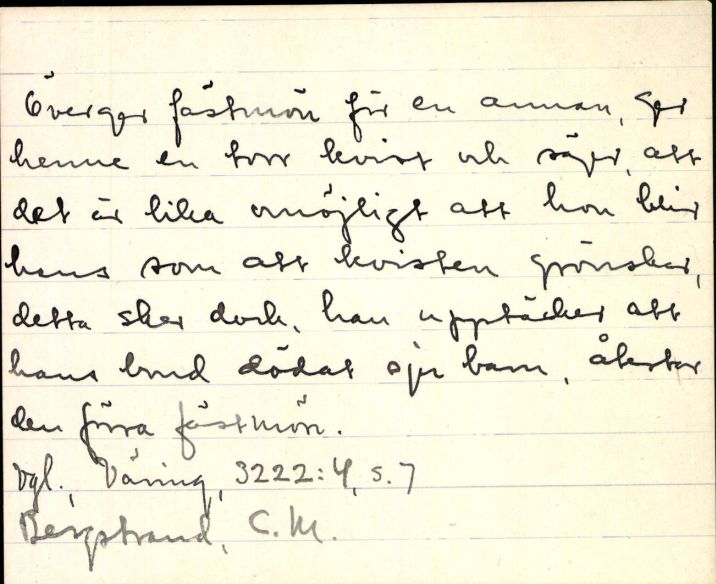 Överger fästmön för en annan, ger
henne en torr kvist och säger, att
det är lika omöjligt att hon blir
hans som att kvisten grönskar,
detta sker dock, han upptäcker att
hans brud dödat sju barn, återtar
den förra fästmön.
Vgl., Väring, 3222:4, s. 7
Bergstrand, C.M.